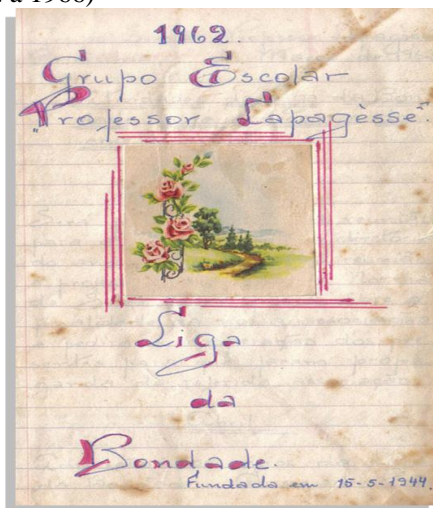 a 1966)
1962.
Grupo Escolar
"Professor Lapagèsse".
Liga
da
Bondade.
Fundada em 15-5-1944.